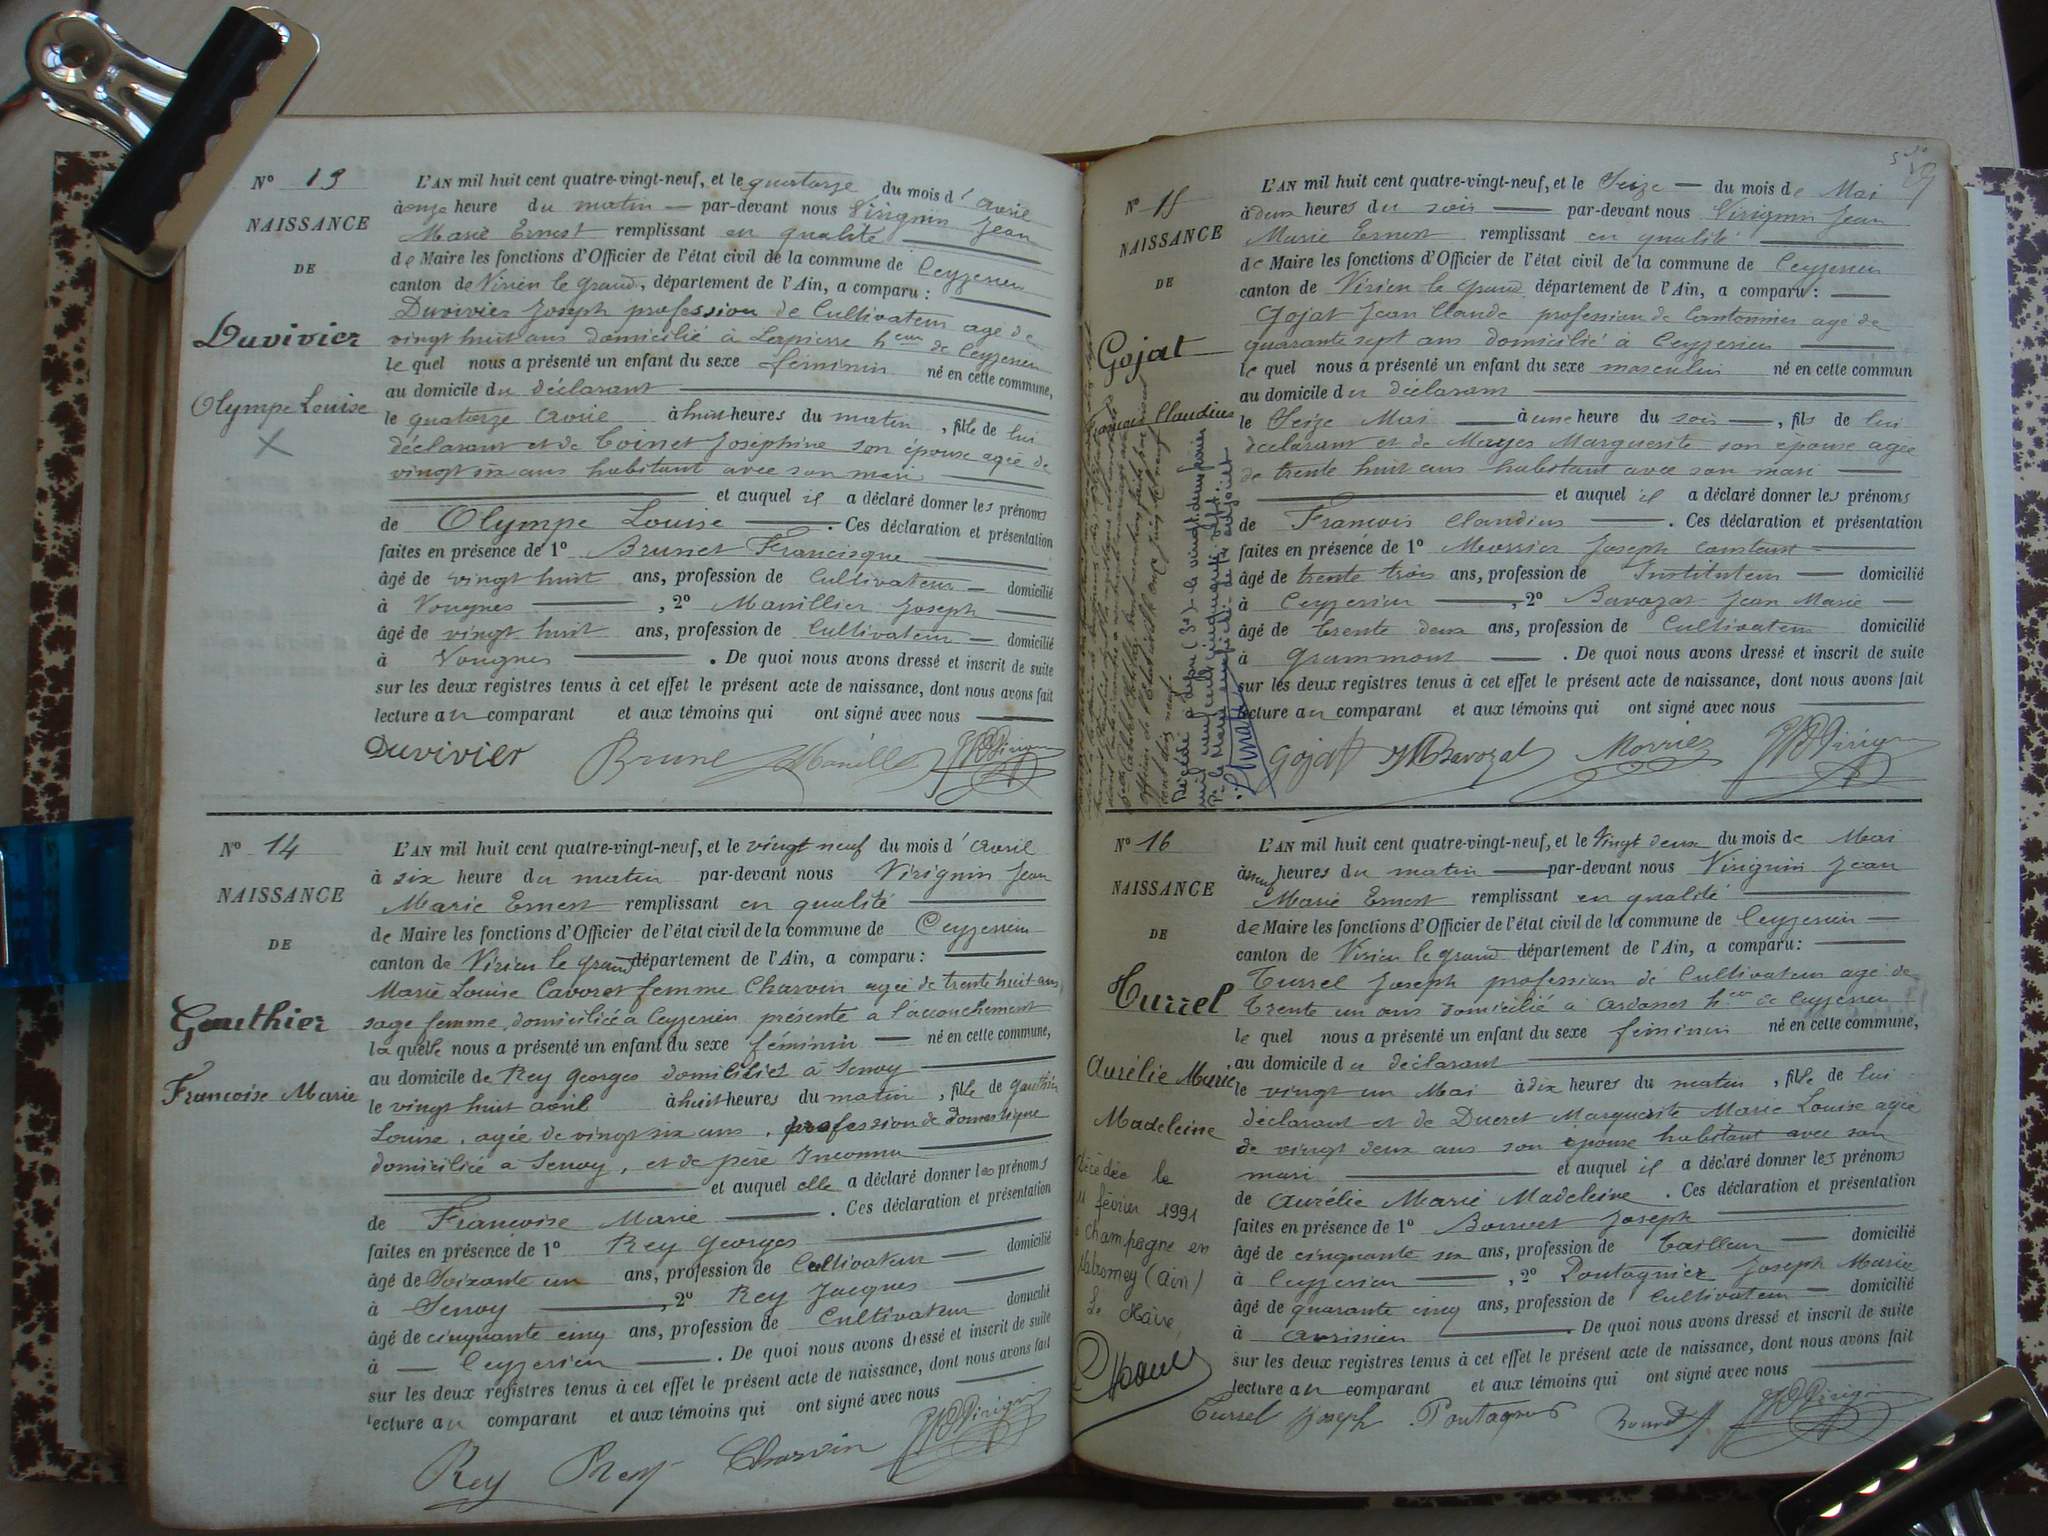 N° 13
NAISSANCE
DE
Duvivier
Olympe Louise
L'AN mil huit cent quatre-vingt-neuf, et le quatorze du mois d'avril
à onze heure du matin par-devant nous Virignin Jean
Marie Ernest remplissant en qualité
de Maire les fonctions d'Officier de l'état civil de la commune de Ceyzerieu
canton de Virieu le grand, département de l'Ain, a comparu :
Duvivier Joseph profession de Cultivateur agé de
vingt huit ans domicilié à Lapierre heau de Ceyzerieu
le quel nous a présenté un enfant du sexe féminin né en cette commune,
au domicile du déclarant
le quatorze avril à huit heures du matin, fille de lui
déclarant et de Coinet Joséphine son épouse agée de
vingt six ans habitant avec son mari
et auquel il a déclaré donner les prénoms
de Olympe Louise. Ces déclaration et présentation
faites en présence de 1° Brunet Francisque
âgé de vingt huit ans, profession de Cultivateur domicilié
à Vongnes, 2° Manillier Joseph
âgé de vingt huit ans, profession de Cultivateur domicilié
à Vongnes. De quoi nous avons dressé et inscrit de suite
sur les deux registres tenus à cet effet le présent acte de naissance, dont nous avons fait
lecture au comparant et aux témoins qui ont signé avec nous
Duvivier Virignin
N° 14
NAISSANCE
DE
Gauthier
Francoise Marie
L'AN mil huit cent quatre-vingt-neuf, et le vingt neuf du mois d'avril
à six heure du matin par-devant nous Virignin Jean
Marie Ernest remplissant en qualité
de Maire les fonctions d'Officier de l'état civil de la commune de Ceyzerieu
canton de Virieu le grand département de l'Ain, a comparu :
Marie Louise Cavoret femme Charvin agée de trente huit ans
sage femme, domiciliée a Ceyzerieu présente a l'accouchement
la quelle nous a présenté un enfant du sexe féminin né en cette commune,
au domicile de Rey Georges domicilié à Senoy
le vingt huit avril à huit heures du matin, fille de Gauthier
Louise, agée de vingt six ans, profession de Domestique
domiciliée a Senoy, et de père Inconnu
et auquel elle a déclaré donner les prénoms
de Francoise Marie. Ces déclaration et présentation
faites en présence de 1° Rey Georges
âgé de Soixante un ans, profession de Cultivateur domicilié
à Senoy, 2° Rey Jacques
âgé de cinquante cinq ans, profession de Cultivateur domicilié
à Ceyzerieu. De quoi nous avons dressé et inscrit de suite
sur les deux registres tenus à cet effet le présent acte de naissance, dont nous avons fait
lecture au comparant et aux témoins qui ont signé avec nous
Rey Rey Charvin Virignin
N° 15
NAISSANCE
DE
Gojat
François Claudius
Décédé à
L'AN mil huit cent quatre-vingt-neuf, et le Seize du mois de Mai
à deux heures du soir par-devant nous Virignin Jean
Marie Ernest remplissant en qualité
de Maire les fonctions d'Officier de l'état civil de la commune de Ceyzerieu
canton de Virieu le grand département de l'Ain, a comparu :
Gojat Jean Claude profession de Cantonnier agé de
quarante sept ans domicilié à Ceyzerieu
le quel nous a présenté un enfant du sexe masculin né en cette commun
au domicile du déclarant
le Seize Mai à une heure du soir, fils de lui
déclarant et de Mayer Marguerite son épouse agée
de trente huit ans habitant avec son mari
et auquel il a déclaré donner les prénoms
de Francois Claudius. Ces déclaration et présentation
faites en présence de 1° Morrier Joseph Constant
âgé de trente trois ans, profession de Instituteur domicilié
à Ceyzerieu, 2° Bavozat Jean Marie
âgé de trente deux ans, profession de Cultivateur domicilié
à Grammont. De quoi nous avons dressé et inscrit de suite
sur les deux registres tenus à cet effet le présent acte de naissance, dont nous avons fait
lecture au comparant et aux témoins qui ont signé avec nous
Gojat JM Bavozat Morrier Virignin
N° 16
NAISSANCE
DE
Turrel
Aurélie Marie
Madeleine
Décédée le
11 février 1991
à Champagne en
Valromey (Ain)
Le Maire,
L'AN mil huit cent quatre-vingt-neuf, et le Vingt deux du mois de Mai
à neuf heures du matin par-devant nous Virignin Jean
Marie Ernest remplissant en qualité
de Maire les fonctions d'Officier de l'état civil de la commune de Ceyzerieu
canton de Virieu le grand département de l'Ain, a comparu :
Turrel Joseph profession de Cultivateur agé de
trente un ans domicilié a Ardosset heau de Ceyzerieu
le quel nous a présenté un enfant du sexe féminin né en cette commune,
au domicile du déclarant
le vingt un Mai à dix heures du matin, fille de lui
déclarant et de Ducret Marguerite Marie Louise agée
de vingt deux ans son épouse habitant avec son
mari et auquel il a déclaré donner les prénoms
de Aurélie Marie Madeleine. Ces déclaration et présentation
faites en présence de 1° Bonnet Joseph
âgé de cinquante six ans, profession de Tailleur domicilié
à Ceyzerieu, 2° Poutagnier Joseph Marie
âgé de quarante cinq ans, profession de Cultivateur domicilié
à Avrissieu. De quoi nous avons dressé et inscrit de suite
sur les deux registres tenus à cet effet le présent acte de naissance, dont nous avons fait
lecture au comparant et aux témoins qui ont signé avec nous
Turrel Joseph Poutagnier Bonnet J Virignin